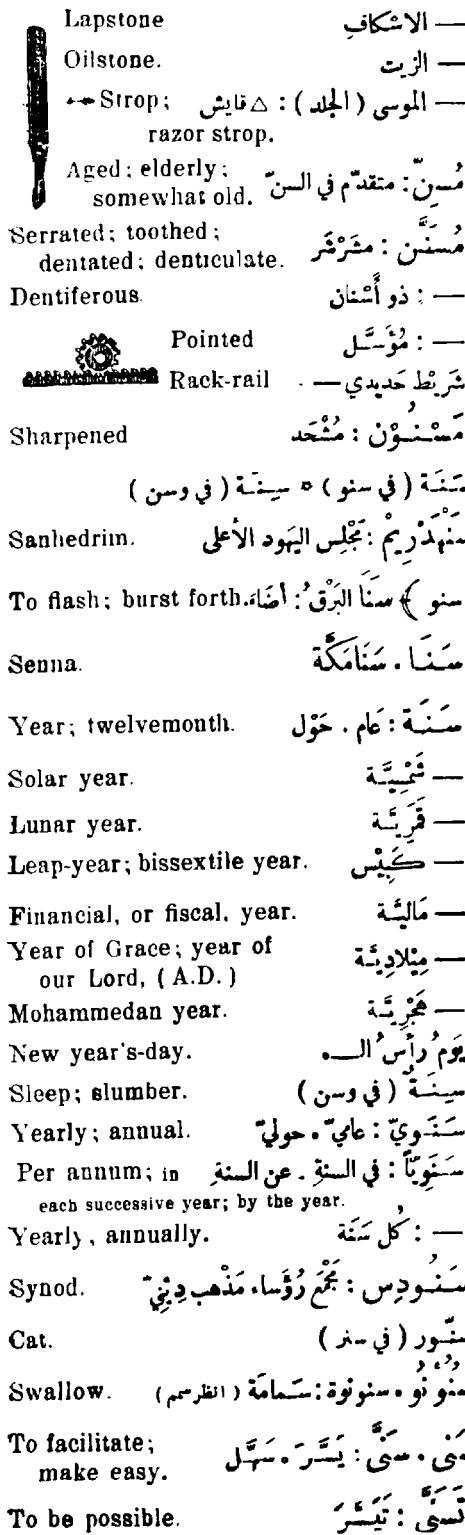 Lapstone — الاسْكافِ
Oilstone. — الزيت
Strop; — الموسى ( الجلد ) : △ قايش
razor strop.
Aged; elderly; مُسِنّ : متقدّم في السنّ
somewhat old.
Serrated; toothed; مُسَنَّن : مُشَرْشَر
dentated; denticulate.
Dentiferous. — : ذو أَسْنان
Pointed — : مُؤَسَّل
Rack-rail شَرِيْط حَديدي —
Sharpened مَسْنُوْن : مُشْحَذ
سَنَة ( في سنو ) ٥ سِنَة ( في وسن )
Sanhedrim. سَنْهِدْرِيمْ : مَجْلِس اليَهود الأعلى
To flash; burst forth. سنو ﴾ سَنَا البَرْقُ : أضَاءَ
Senna. سَنَا . سَنَامَكَّة
Year; twelvemonth. سَنَة : عَام . حَوْل
Solar year. — شَمْسِيَّة
Lunar year. — قَمَرِيَّة
Leap-year; bissextile year. — كَبِيْس
Financial, or fiscal, year. — مَاليَّة
Year of Grace; year of — مِيْلادِيَّة
our Lord, ( A.D. )
Mohammedan year. — هِجْرِيَّة
New year's-day. يَوْمُ رأْسِ الـــ.
Sleep; slumber. سِنَةٌ ( في وسن )
Yearly; annual. سَنَوِيّ : عاميّ . حوليّ
Per annum; in سَنَوِيّاً : في السنةِ . عن السنةِ
each successive year; by the year.
Yearly, annually. — : كُل سَنَة
Synod. سَنُودِس : مَجْمَع رُؤَساء مَذْهَب دِيْنِيّ
Cat. سِنَّور ( في سنر )
Swallow. سُنُونُو . سنونوة : سَمامَة ( انظر سمم )
To facilitate; سَنَى . سَنَّى : يَسَّرَ . سَهَّل
make easy.
To be possible. تَسَنَّى : تَيَسَّرَ